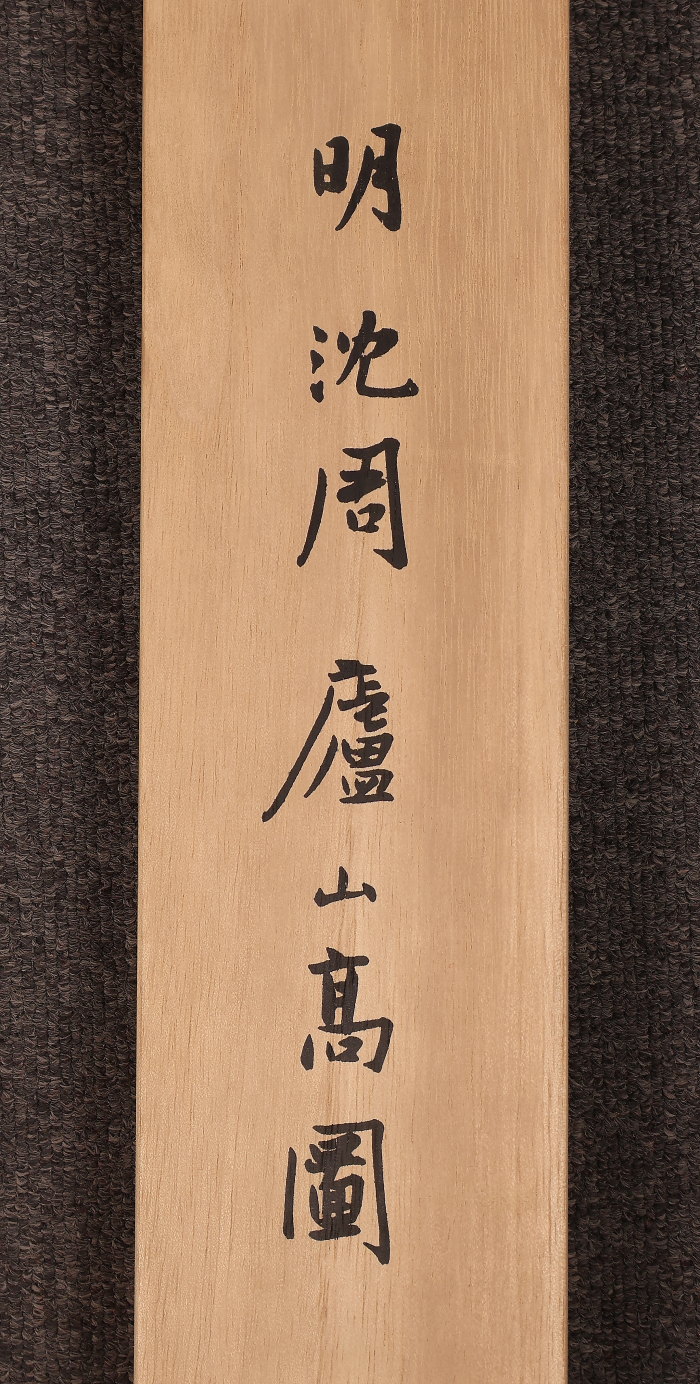 明沈周廬山高圖